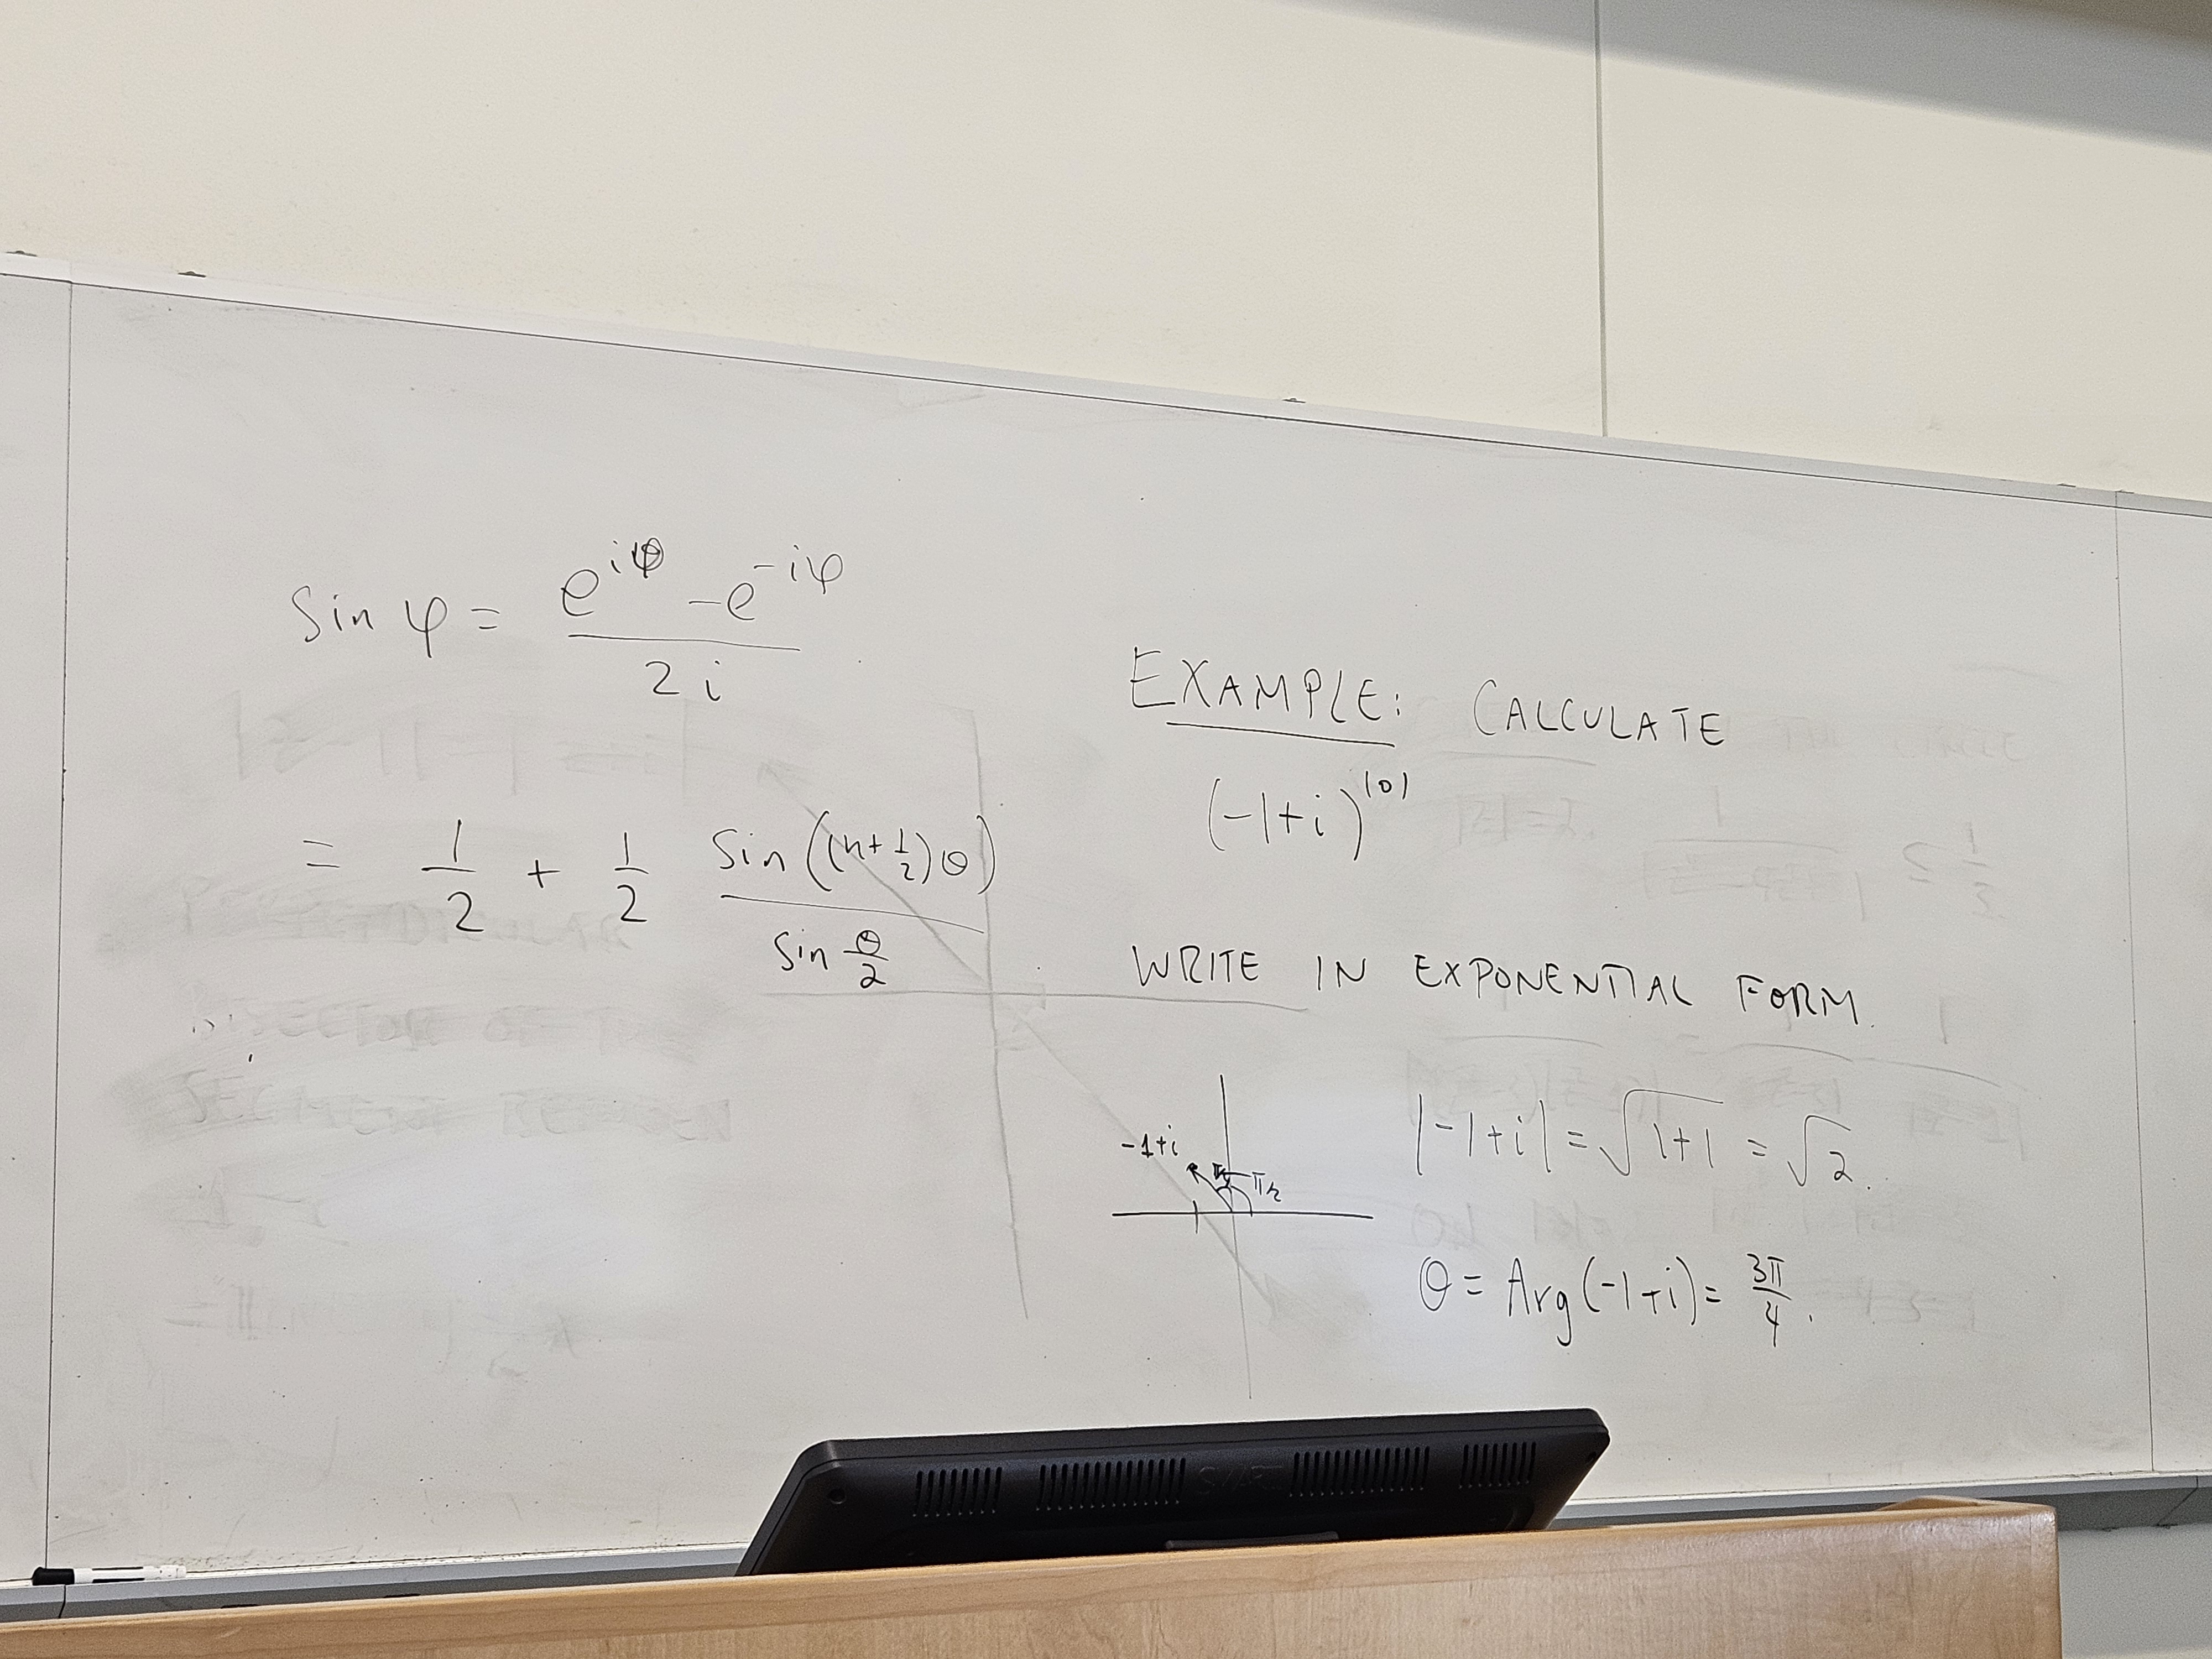 sin φ = (e^{iφ} - e^{-iφ}) / 2i
= 1/2 + 1/2 sin((n+1/2)θ) / sin θ/2
EXAMPLE: CALCULATE
(-1+i)^{101}
WRITE IN EXPONENTIAL FORM.
-1+i
π/2
|-1+i| = √1+1 = √2.
θ = Arg(-1+i) = 3π/4.
SMART